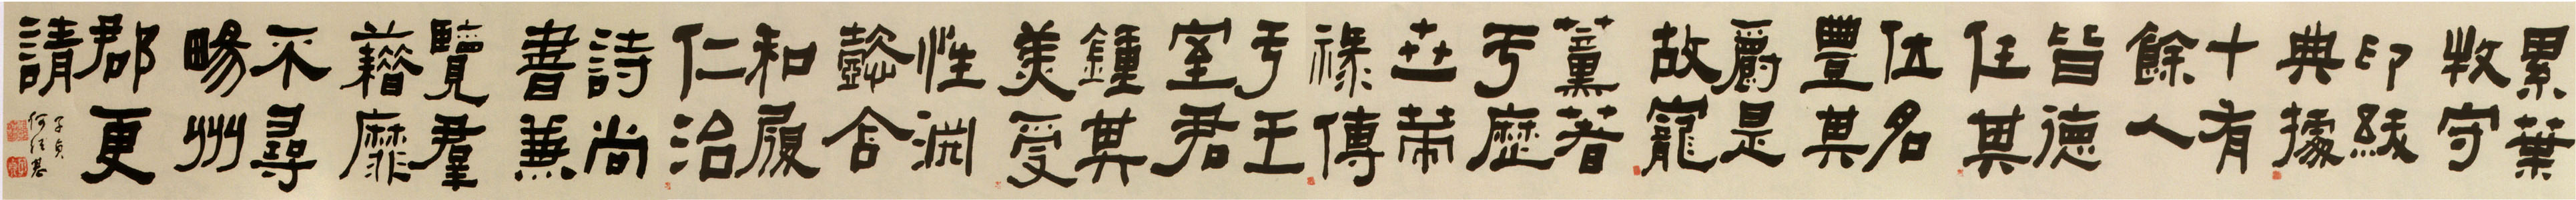 累葉
牧守
印紱
典據
十有
餘人
皆德
任其
位名
豐其
爵是
故寵
薰著
于歷
世榮
祿傳
于王
室君
鍾其
美受
性淵
懿含
和履
仁治
詩尚
書兼
覽群
藉靡
不尋
暢州
郡更
請
子貞
何紹基